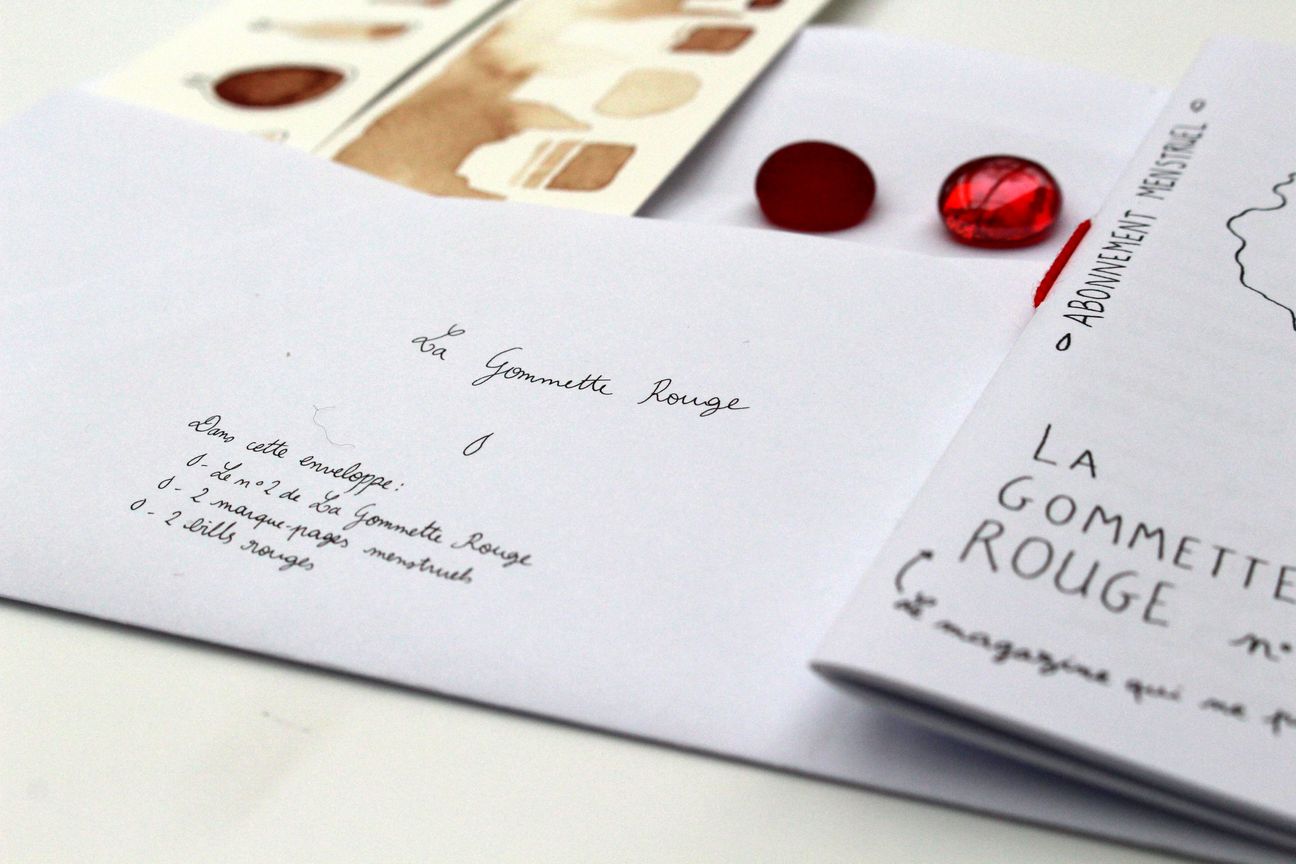 La Gommette Rouge
Dans cette enveloppe:
- Le n°2 de La Gommette Rouge
- 2 marque-pages menstruels
- 2 bills rouges
ABONNEMENT MENSTRUEL
LA
GOMMETTE
ROUGE
n°
Le magazine qui ne